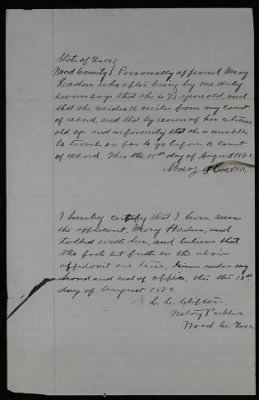 State of Texas
Wood County } Personally appeared Mary
Haden who after being by me duly
sworn says that she is 73 years old, and
that she resides 16 miles from any court
of record, and that by reason of her extreme
old age and infirmity that she is unable
to travel so far to go before a court
of record. This the 15th day of August 1882.
Mary Haden
I hereby certify that I have seen
the applicant, Mary Haden, and
talked with her, and believe that
the facts set forth in the above
affidavit are true. Given under my
hand and seal of office, this the 15th
day of August 1882
L. C. Clifton
Notary Public
Wood Co. Texas